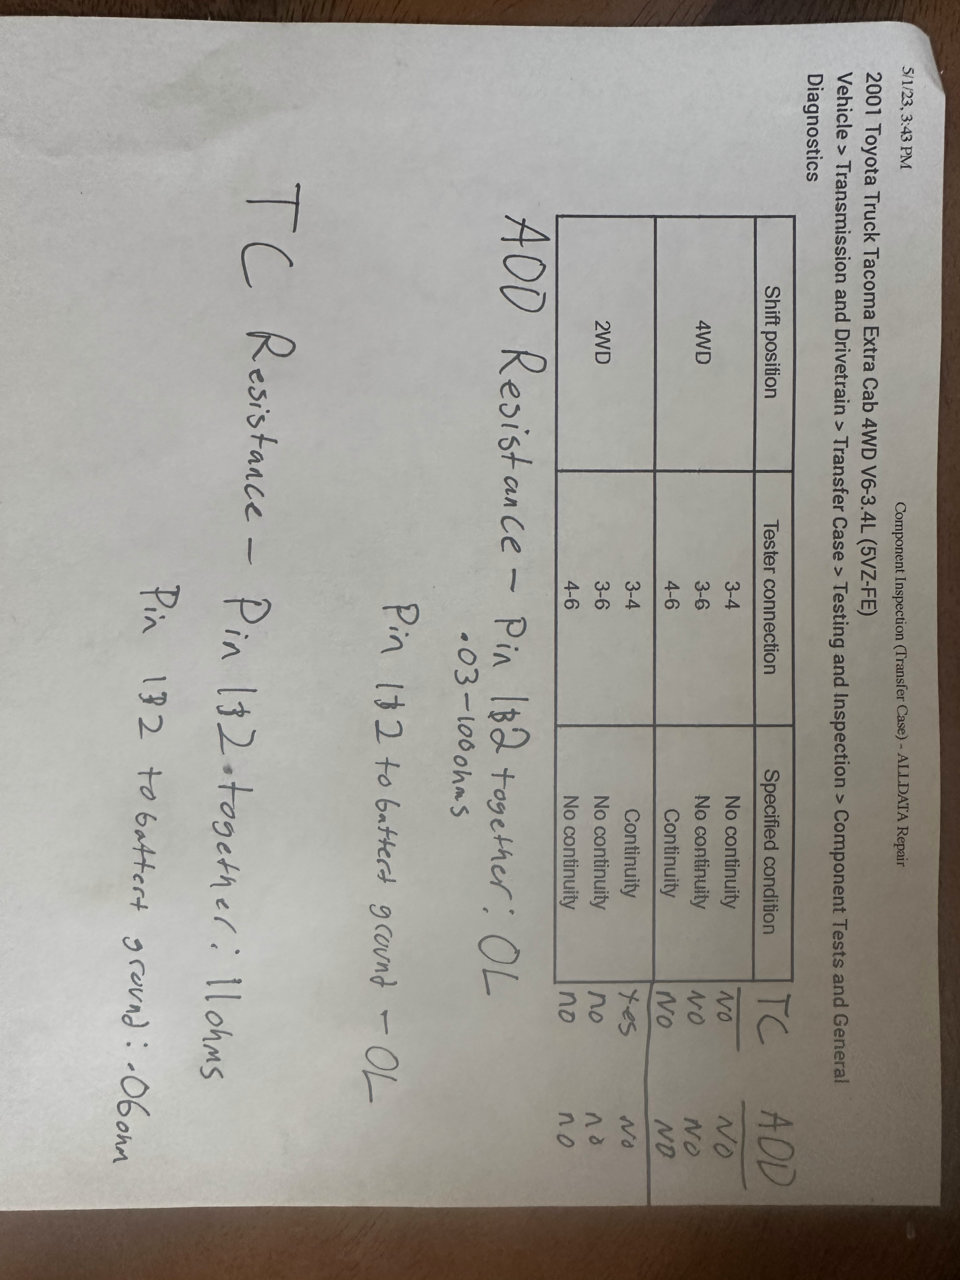 5/1/23, 3:43 PM Component Inspection (Transfer Case) - ALLDATA Repair
2001 Toyota Truck Tacoma Extra Cab 4WD V6-3.4L (5VZ-FE)
Vehicle > Transmission and Drivetrain > Transfer Case > Testing and Inspection > Component Tests and General
Diagnostics
Shift position Tester connection Specified condition TC AOD
3-4 No continuity NO NO
4WD 3-6 No continuity NO NO
4-6 Continuity NO NO
3-4 Continuity Yes No
2WD 3-6 No continuity no no
4-6 No continuity no no
AOD Resistance - Pin 1&2 together: OL
.03-100ohms
Pin 1&2 to battert ground - OL
TC Resistance - Pin 1&2 together: 11ohms
Pin 1&2 to battert ground: .06ohm